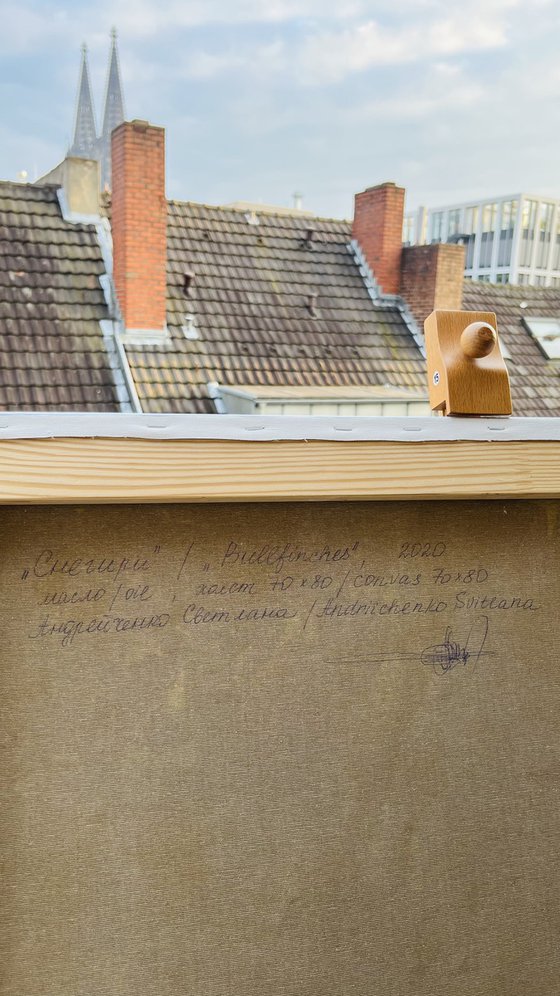 „Снегири" / „Bullfinches", 2020
масло / oil, холст 70×80 / canvas 70×80
Андрейченко Светлана / Andriichenko Svitlana